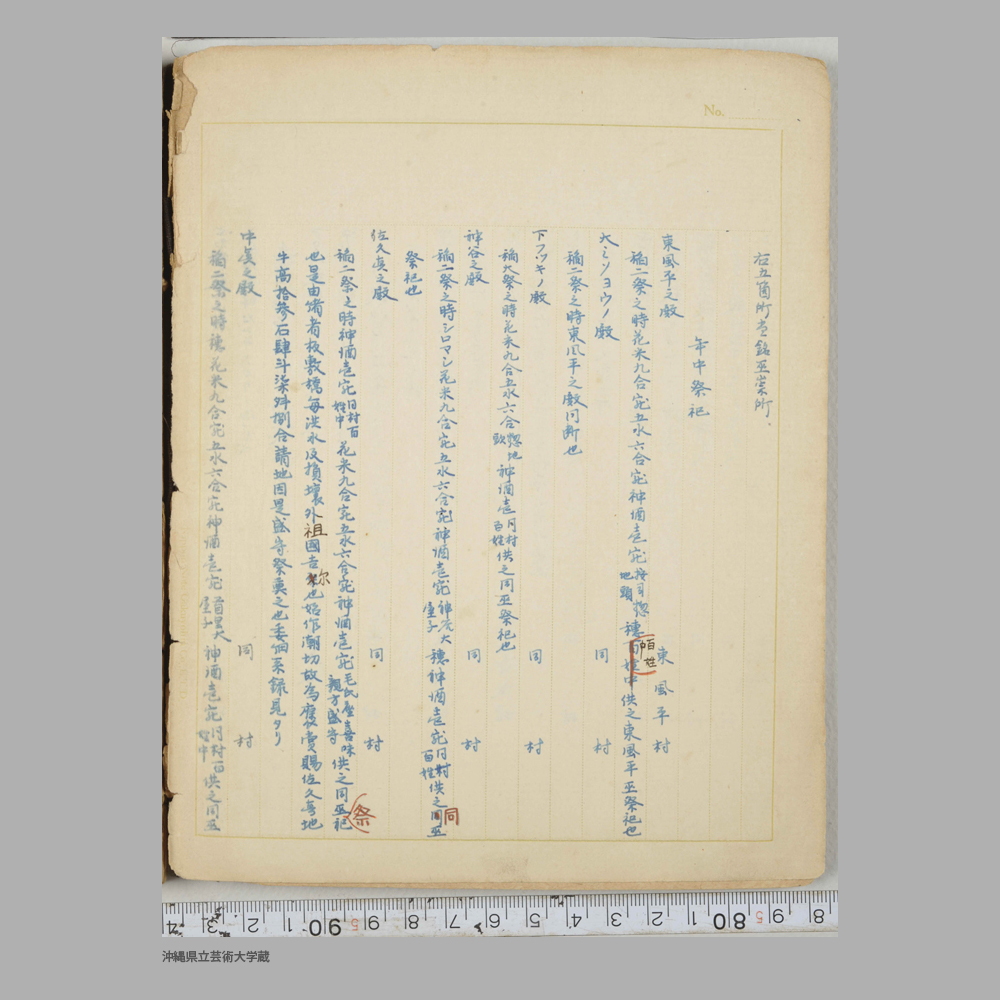 No.
右五箇所堂銘巫崇所、
年中祭祀
東風平之殿 東風平村
稲二祭之時花米九合宛五水六合宛神酒壱宛按司惣地頭穂百姓中供之東風平巫祭祀也
百姓
大ミソヨウノ殿 同村
稲二祭之時東風平之殿同断也
下フツキノ殿 同村
稲穴祭之時花米九合五水六合惣地頭神酒壱同村百姓供之同巫祭祀也
神谷之殿 同村
稲二祭之時シロマシ花米九合宛五水六合宛神酒壱宛神谷大屋子穂神酒壱宛同村百姓供之同巫
同
祭祀也
佐久真之殿 同村
稲二祭之時神酒壱宛同村百姓中花米九合宛五水六合宛神酒壱宛毛氏座喜味親方盛寺供之同巫祀
祭
也是由緒者枚敷橋毎洪水及損壊外祖國吉尓也始作潮切故為褒賞賜佐久真地
牛高拾参石肆斗柒舛捌合請地因是盛寺祭奠之也委細系録見タリ
中真之殿 同村
稲二祭之時穂花米九合宛五水六合宛神酒壱宛首里大屋子神酒壱宛同村百姓中供之同巫
4 3 2 1 90 9 5 8 7 6 5 4 3 2 1 80 9 5 8
沖縄県立芸術大学蔵